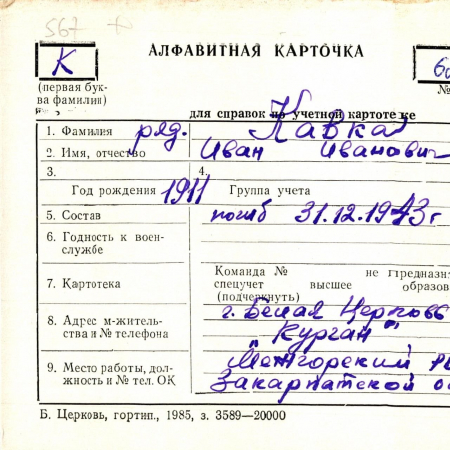 567 +
АЛФАВИТНАЯ КАРТОЧКА
К
(первая бук-
ва фамилии)
№
для справок по учетной картотеке
1. Фамилия ряд. Кавка
2. Имя, отчество Иван Иванович
3. 4.
Год рождения 1911 Группа учета
5. Состав погиб 31.12.1943г
6. Годность к воен-
службе
Команда № не предназн
7. Картотека спецучет высшее образов
(подчеркнуть)
8. Адрес м-житель-
ства и № телефона
г. Белая Церковь
"Курган"
9. Место работы, дол-
жность и № тел. ОК
Межгорский
Закарпатской о
Б. Церковь, гортип., 1985, з. 3589—20000